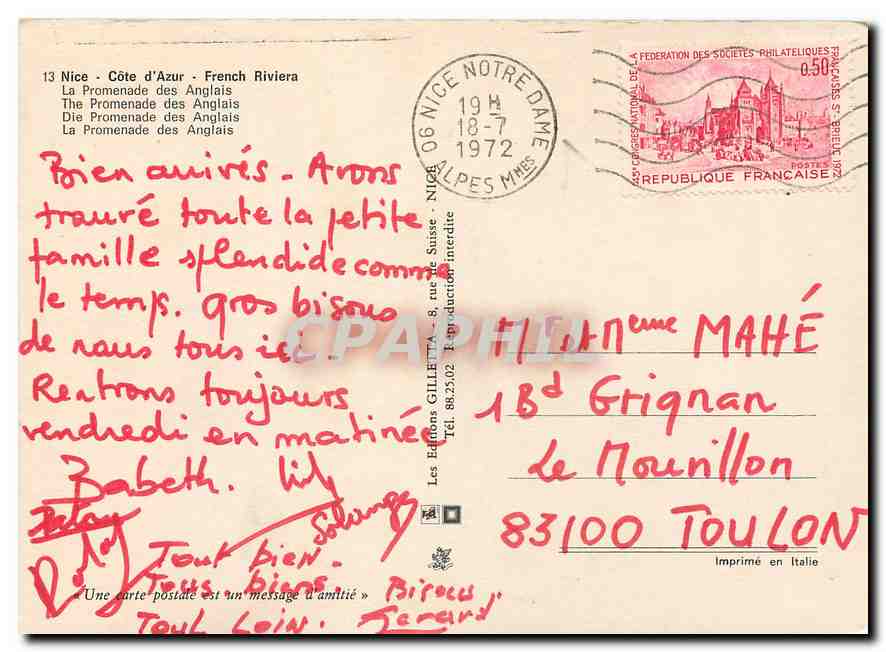 13 Nice - Côte d'Azur - French Riviera
La Promenade des Anglais
The Promenade des Anglais
Die Promenade des Anglais
La Promenade des Anglais
06 NICE NOTRE DAME
19H
18-7
1972
ALPES MMES
45e CONGRES NATIONAL DE LA FEDERATION DES SOCIETES PHILATELIQUES FRANÇAISES ST BRIEUC 1972
0,50
POSTES
REPUBLIQUE FRANÇAISE
Bien arrivés - Avons
trouvé toute la petite
famille splendide comme
le temps. gros bisous
de nous tous ici.
Rentrons toujours
vendredi en matinée
Babeth. Lily
Solange
Tout bien.
Tous biens. Bisous
Tout Loin. Gerard
« Une carte postale est un message d'amitié »
Les Editions GILLETTA - 8, rue de Suisse - NICE
Tél. 88.25.02 Reproduction interdite
CPAPHIL
Mr et Meme MAHÉ
1 Bd Grignan
Le Mourillon
83100 TOULON
Imprimé en Italie